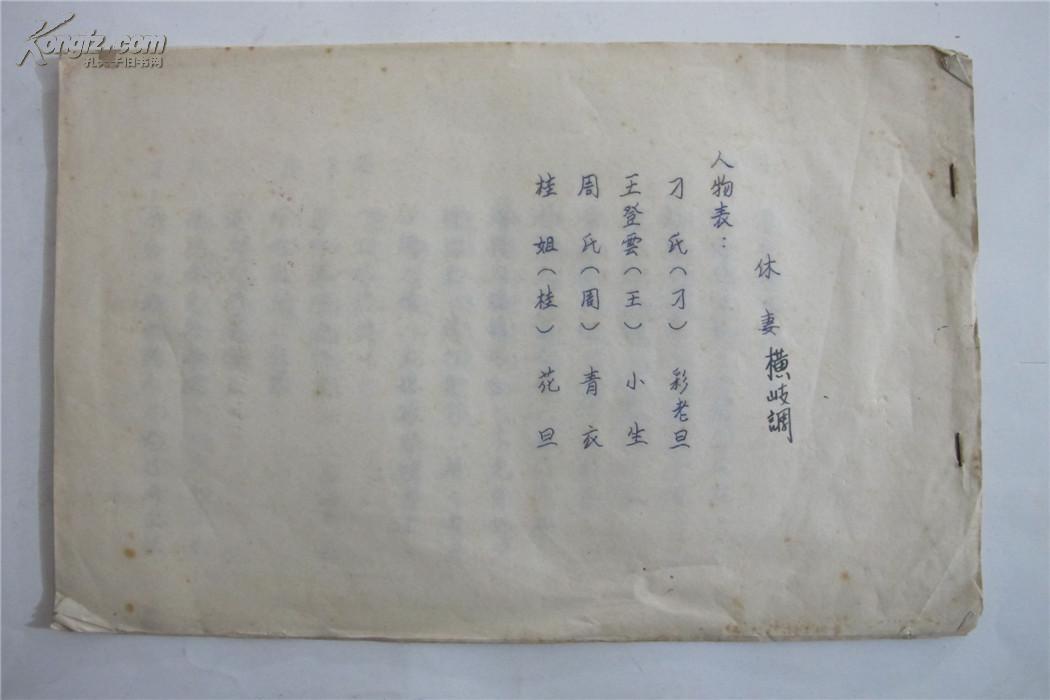 休妻 橫岐調
人物表：
刁氏（刁） 彩老旦
王登雲（王） 小生
周氏（周） 青衣
桂姐（桂） 花旦
Kongfz.com
孔夫子旧书网